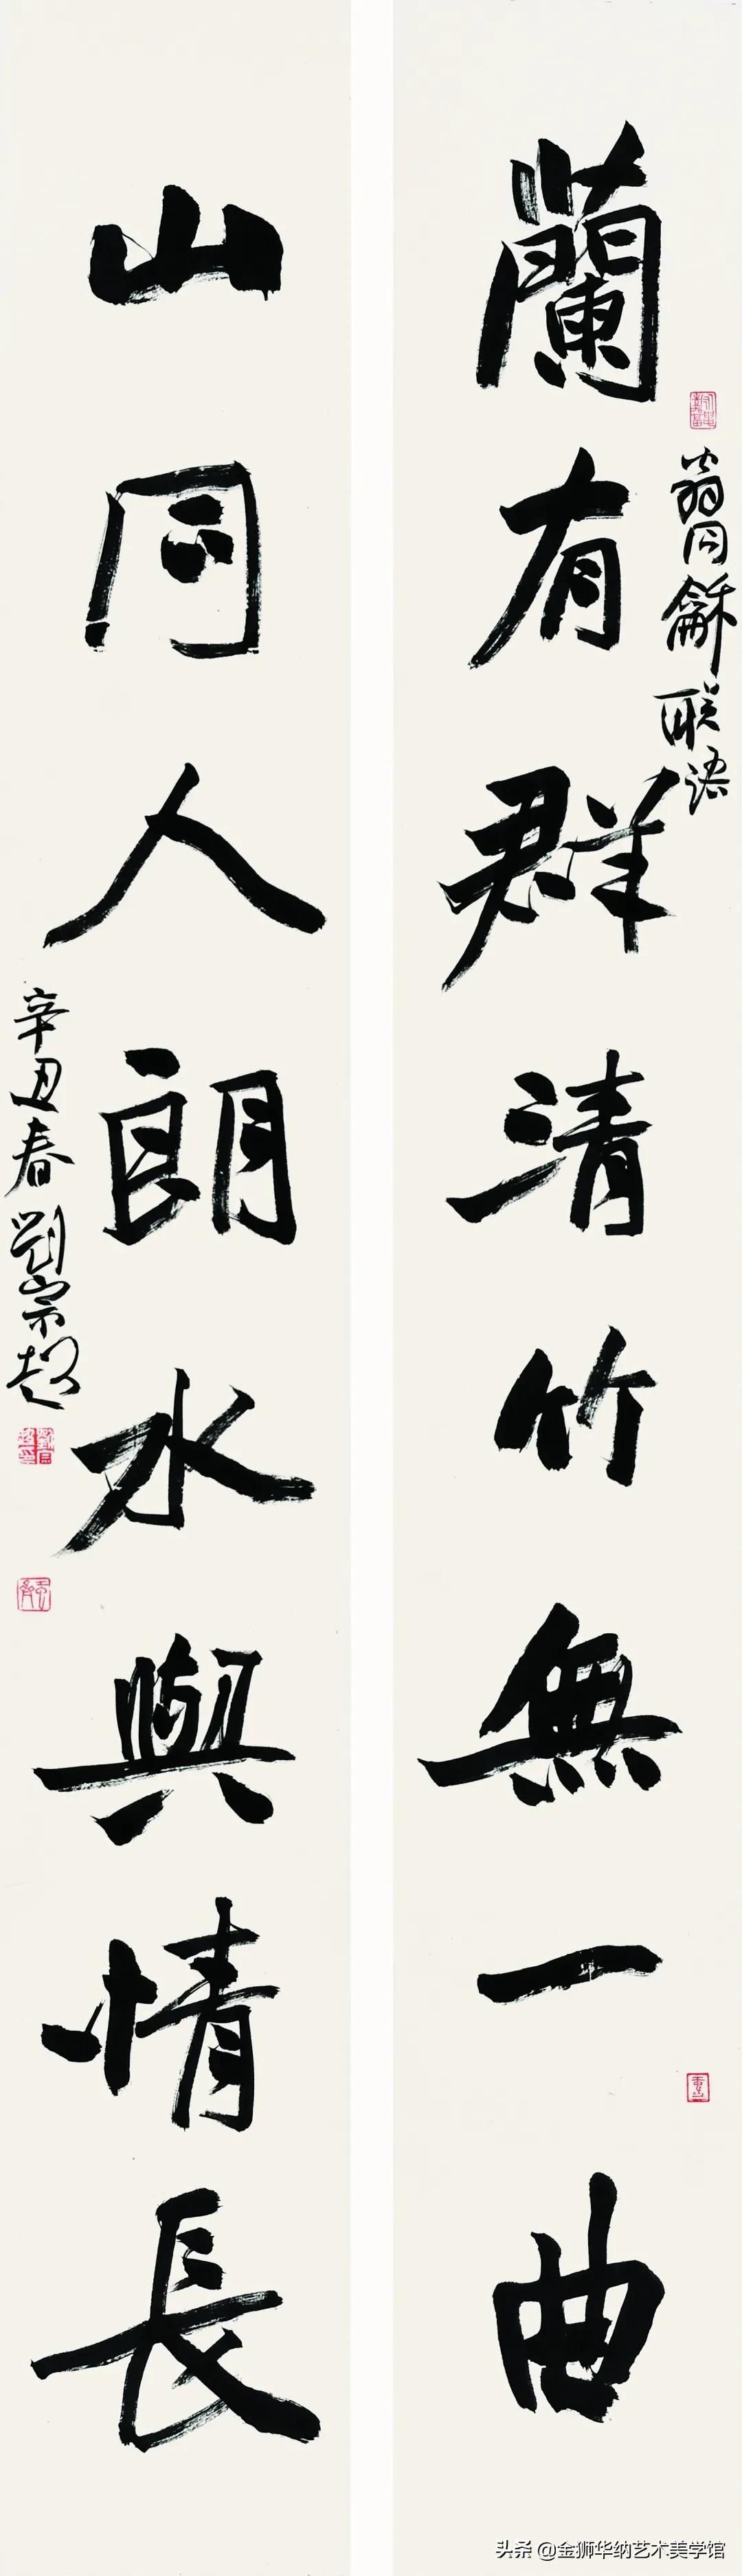 蘭有群清竹無一曲
翁同龢联语
山同人朗水與情長
辛丑春劉宗超
头条 @金狮华纳艺术美学馆